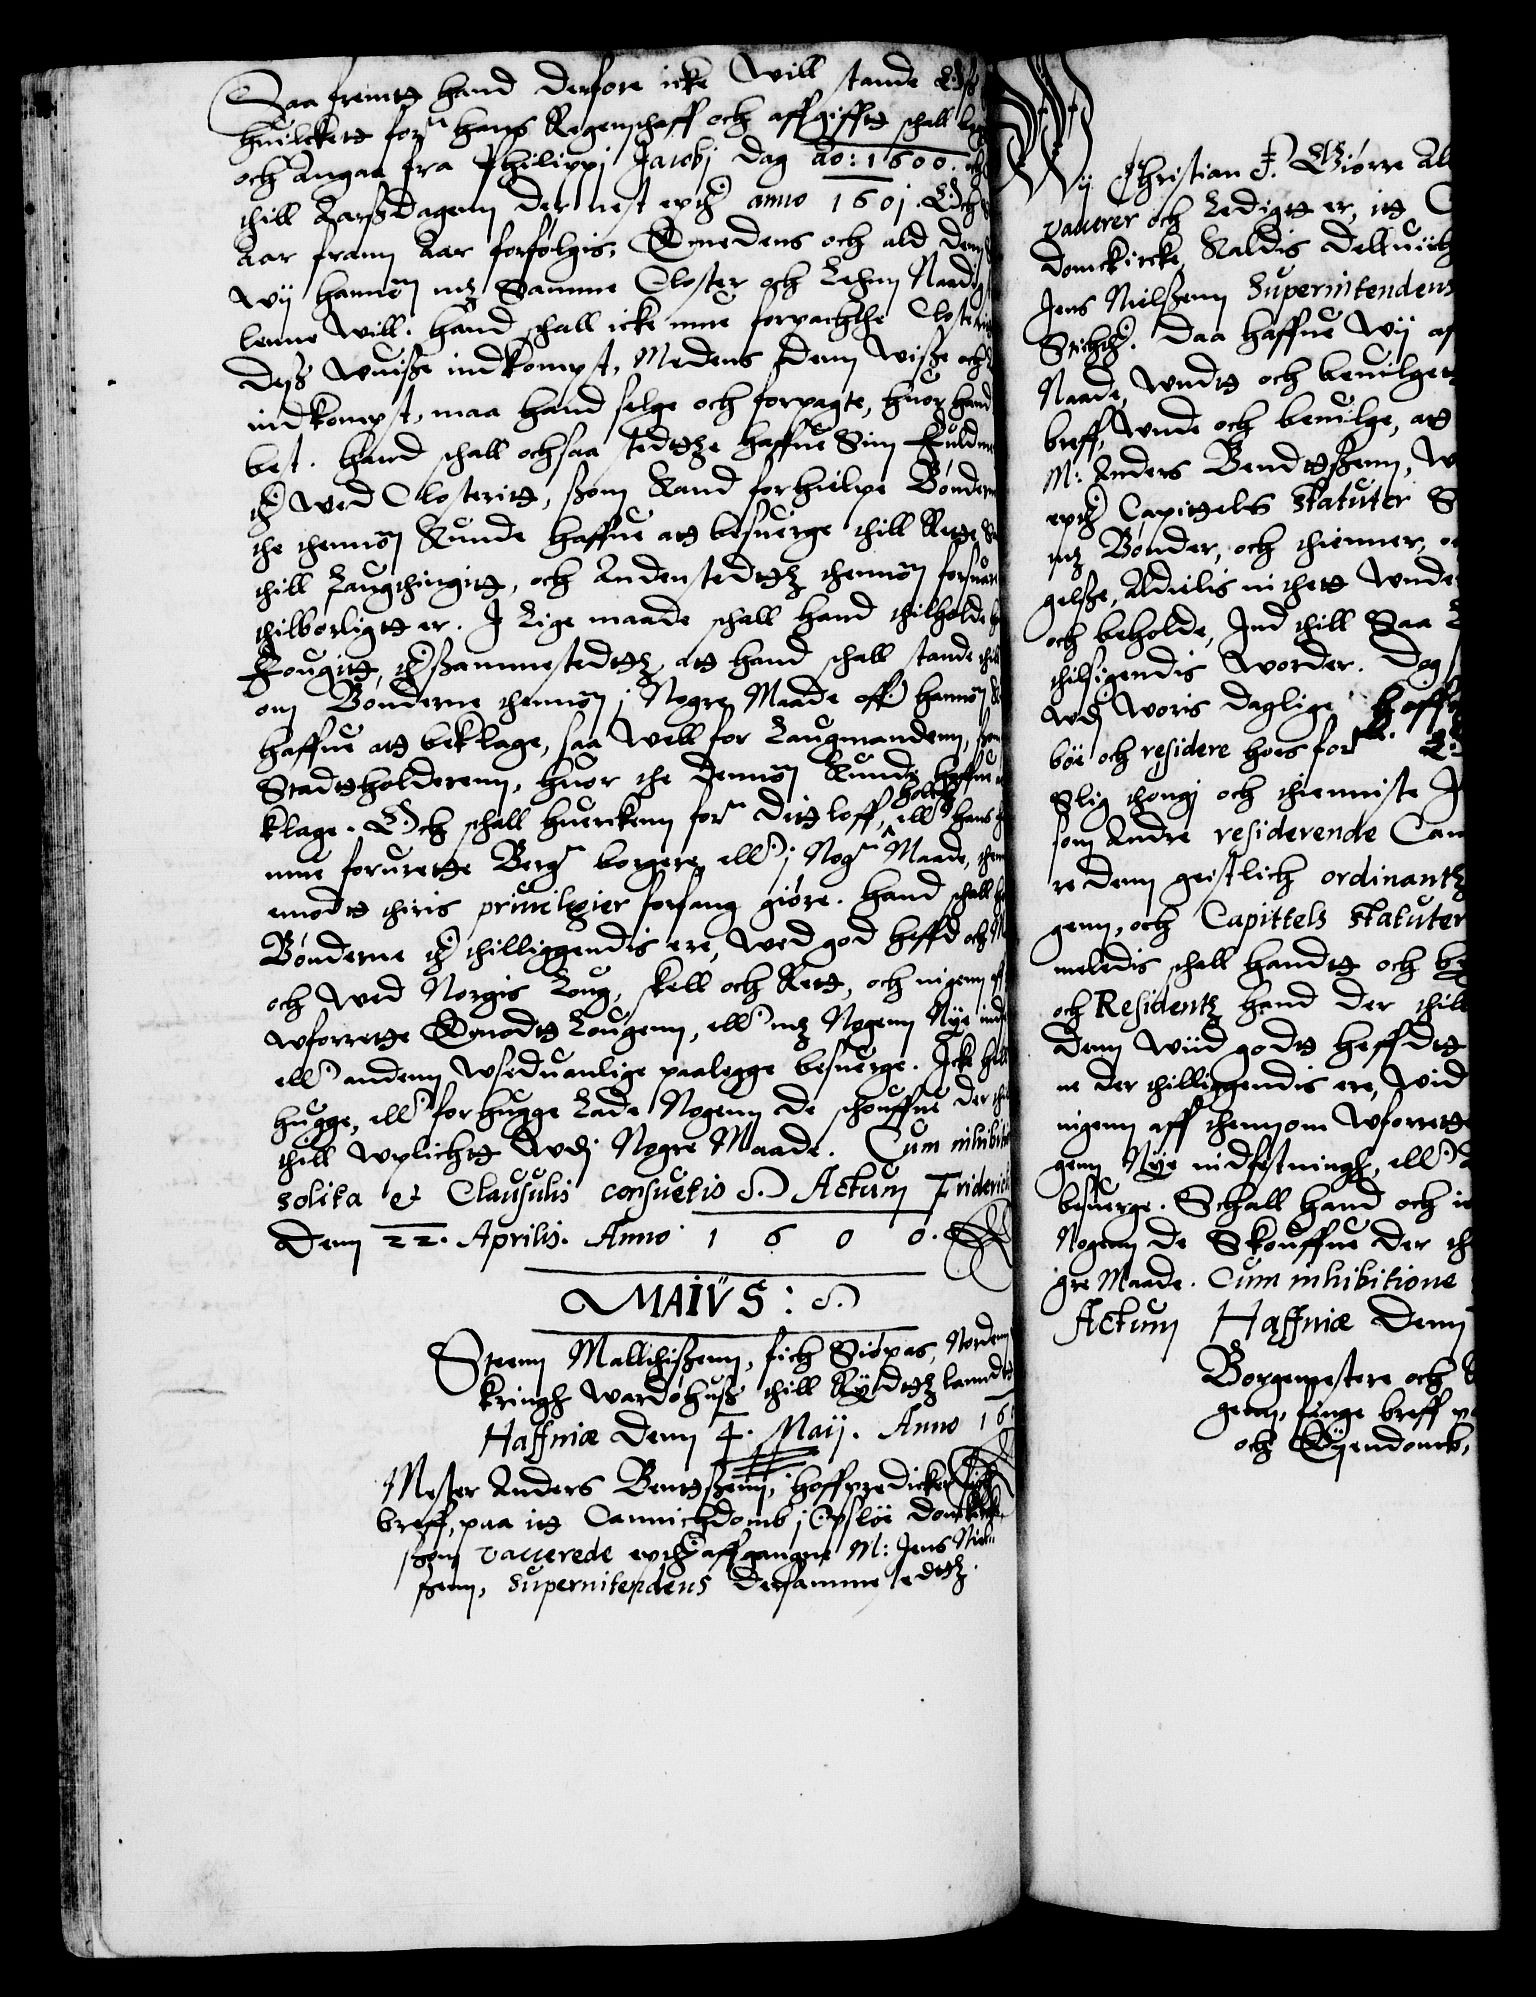 Saa fremtt hand derfore icke will stande
huilckett for.ne hans Regenschaff och affgifftt schall
och Angaa fra Philippi Jacobj dag ao: 1600. och
thill Aarssdagenn dernest epth. anno 1601. Och
Aar fram Aar forfølgis, Emedens och ald denn
wij hannem mz samme Closter och Lehnn Naadig
lenne will. Hand schall icke mue forpachthe Closteritz
dess wuisse indkompst, Medens denn wisse och
indkompst, maa hand selge och forpagte, huor hand
best. Hand schall ochsaa tedtze haffue Sinn Fuldme
th. wed Closteritt, ssom kand forhielpe Bønderne
the thennom kunde haffue att besuerge thill Rette
thill Laugthingitt, och Andenstedtz thennom forsuare
thilborligtt er. I Lige maade schall hand thilholde
Fougitt, th.ssammestedtz, att hand schall stande thill
om Bønderne thennom i Nogre Maade off. hannom
haffue att beklage, saa well for Laugmandenn, som
Stadtholderenn, huor the dennom kunde haffue
klage. Och schall huerckenn for.ne Ditloff holck, ell. hans
mue forurette Berg.n borgere, ell. i Nog.n Maade, them
emodtt thiris priuilegier forfang giøre. Hand schall
Bønderne th. thilliggendis ere, wed god heffd och
och wed Norgis Loug, skell och Rett, och ingenn aff
wforrette Emodtt Lougenn, ell. mz Nogenn Nye indf
ell. andenn wseduanlige paalegge besuerge. Icke hell
hugge, ell. forhugge Lade Nogenn de schouffue der thil
thill wplichtt wdj Nogre Maade. Cum inhibitione
solita et Clausulis consuetis. Actum Friderich
Denn 22. Aprilis. Anno 1 6 0 0.
MAIVS:
Steenn Malthissenn, fich Siøpas, Norden
kringh Wardøhuss thill Rydtzlanndt
Haffniæ Denn 4. Maij. Anno 16
Mester Anders Bentssenn, hoffpredicker fich
breff, paa itt Cannichdomb j Opsløe domkirke
ssom vacerede epth. affgangne M: Jens Niel
ssenn, Superintendens dersammestedtz.
Wij Christian 4. Giørre All
vacerer och Ledigtt er, itt C
domckircke, Kaldis
Jens Nielssenn Superintendens
Stichtt. Daa haffue Wij aff
Naade, wndtt och beuilgett
breff, wnde och beuilge, att
M: Anders Bendtssenn, w
epth. Capittels Statuter
mz Bønder, och thienner, oc
gelsse, Aldielis inthett wnde
och beholde, Ind thill Saa
thilsigendis worder. Dog
wdj woris daglige hoff
bøe och residere hoes for.ne
Slig thongj och thienniste
som Andre residerende Can
re denn geistlich ordinantz
genn, och Capittels Statuter
meldis schall handtt och
och Residentz hand der thill
denn wiid godtt heffdtt
ne der thilliggendis ere, wid
ingenn aff thennom wforrette
genn Nye indfestningh, ell.
besuerge. Schall hand och ic
Nogenn de Skouffue der th
gre Maade. Cum inhibitione
Actum Haffniæ Denn
Borgemestere och
genn, finge breff
och Eyendomb,